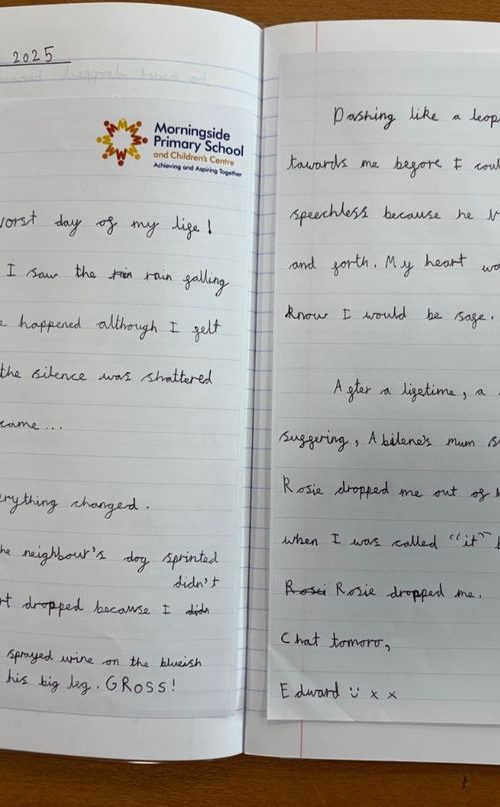 2025
Morningside
Primary School
and Children's Centre
Achieving and Aspiring Together
worst day of my life!
I saw the rain rain falling
e happened although I felt
the silence was shattered
came...
erything changed.
he neighbour's dog sprinted
didn't
rt dropped because I didn
sprayed urine on the blueish
his big leg. GRoss!
Dashing like a leop
towards me before I coul
speechless because he
and forth. My heart wa
know I would be safe.
After a lifetime, a
suffering, Abilene's mum s
Rosie dropped me out of h
when I was called "it" b
Rosei Rosie dropped me.
Chat tomoro,
Edward x x